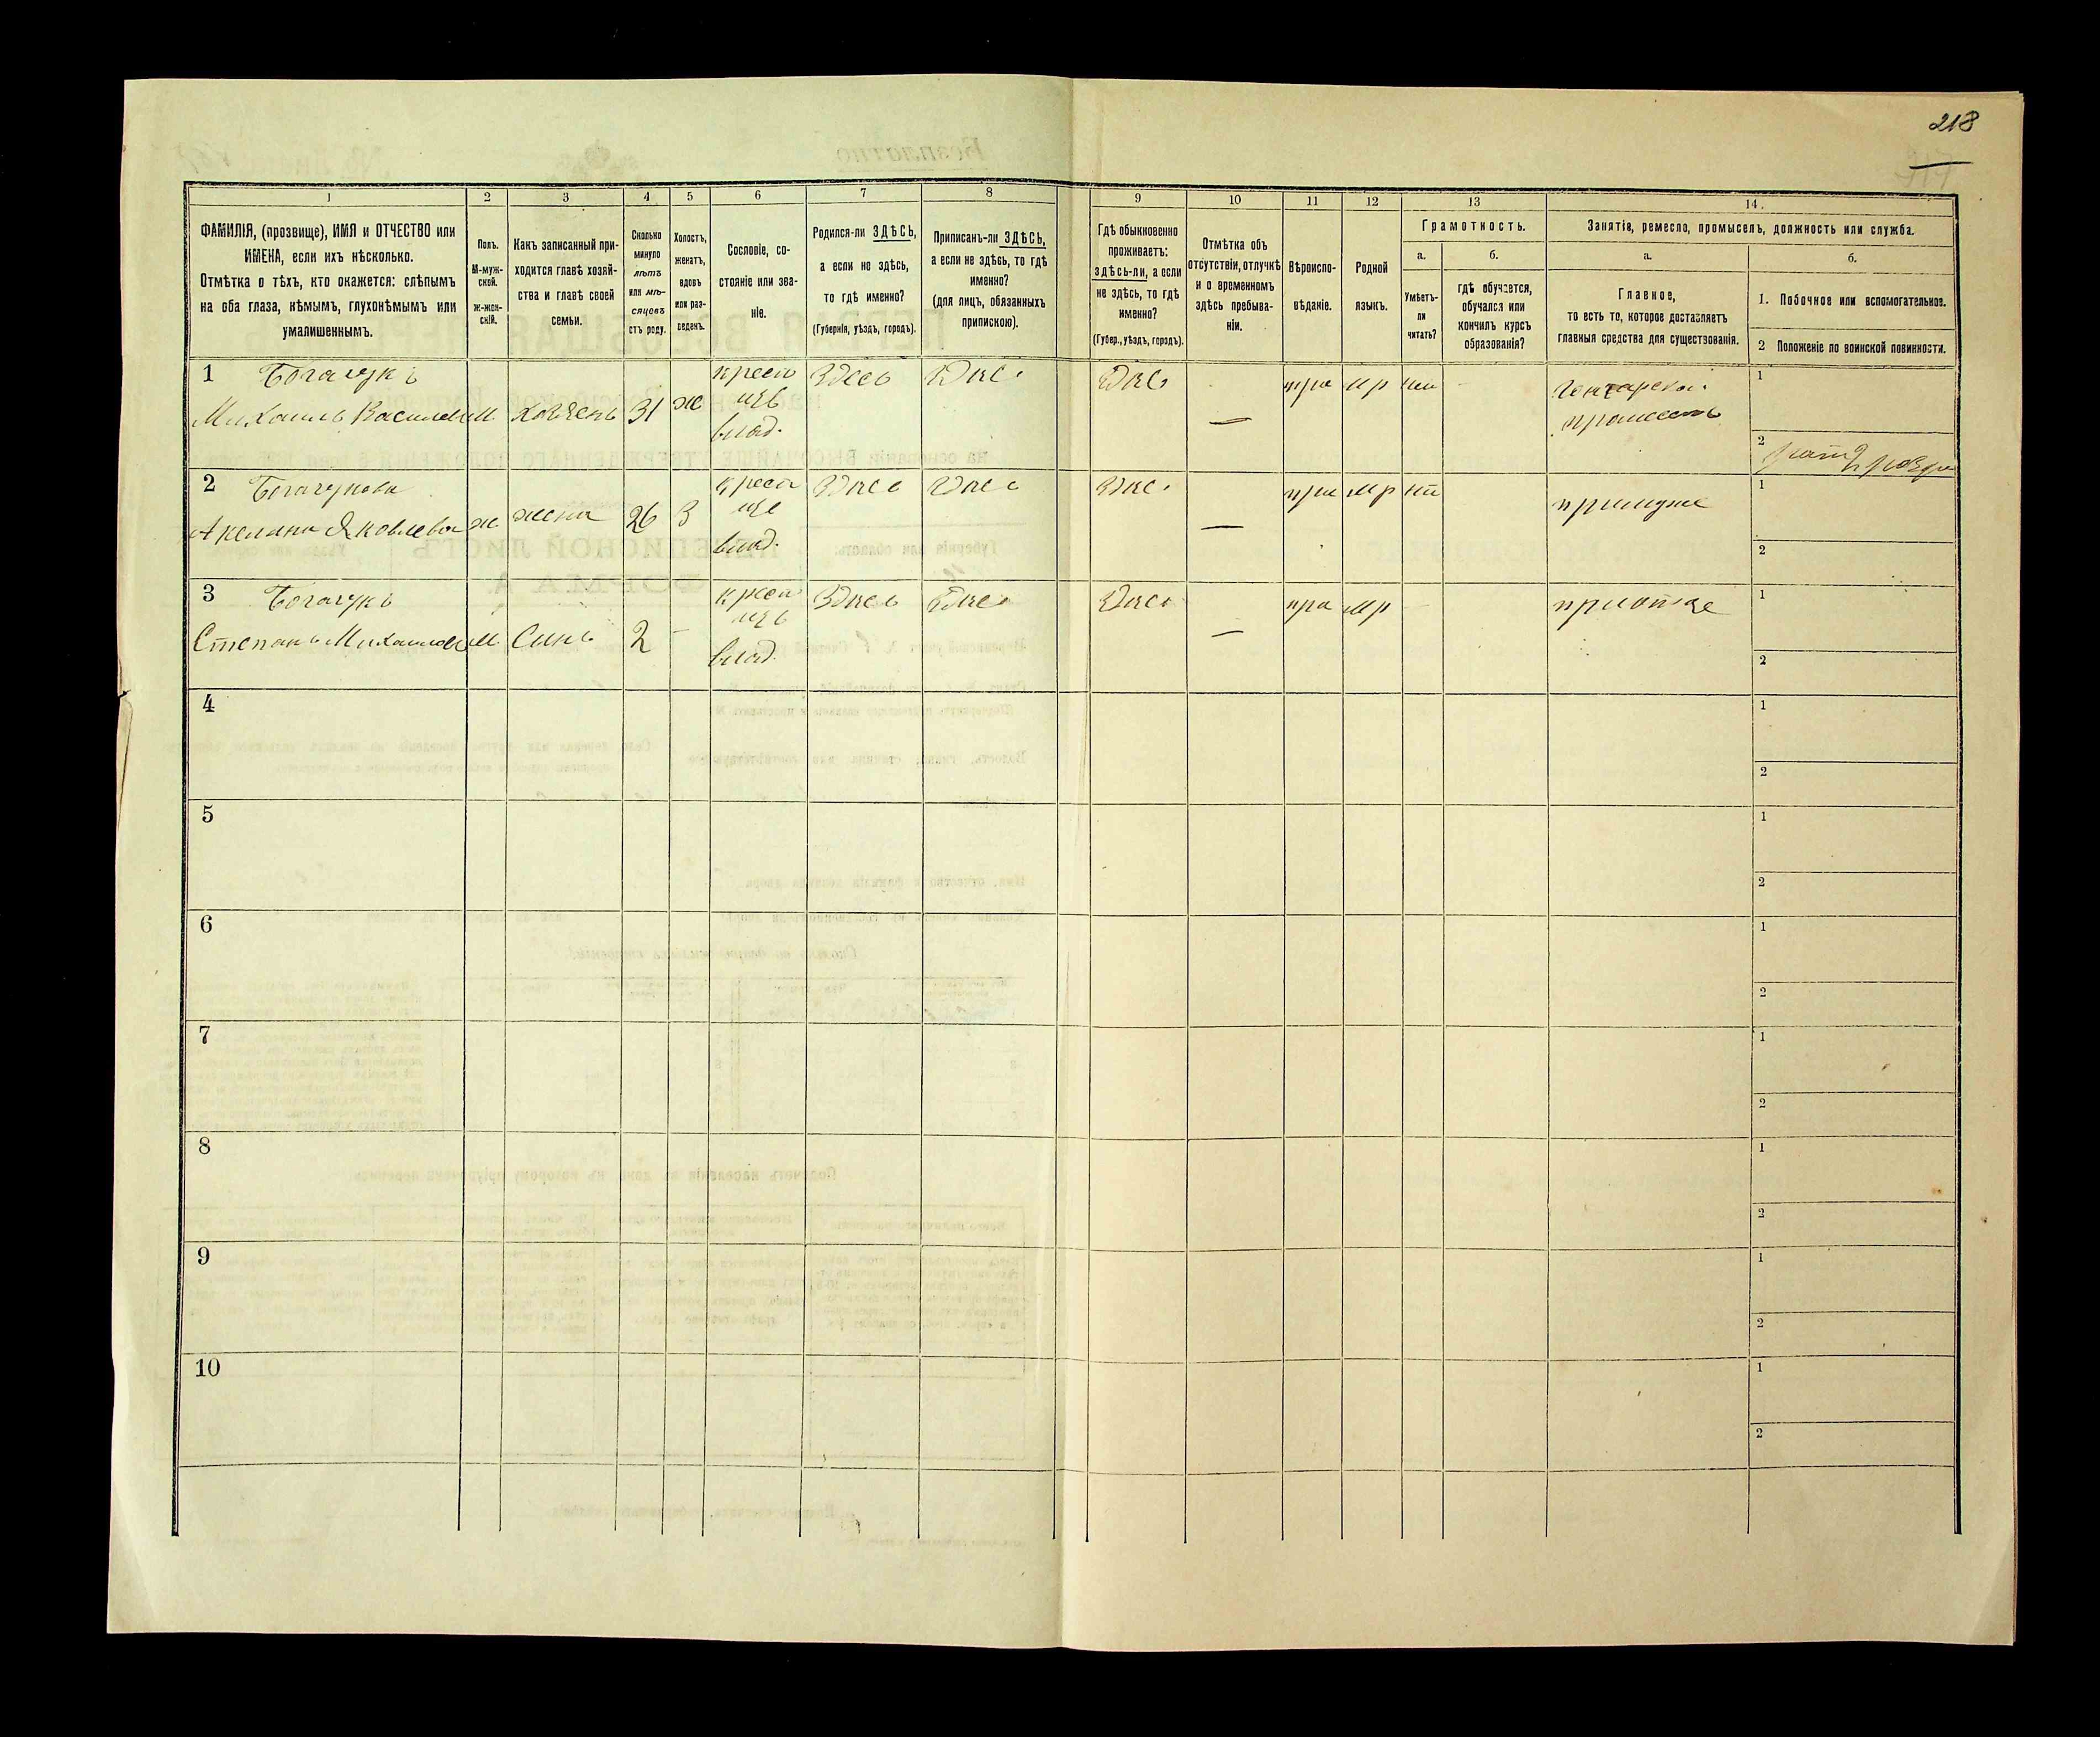 218
1 2 3 4 5 6 7 8 9 10 11 12 13 14.
ФАМИЛІЯ, (прозвище), ИМЯ и ОТЧЕСТВО или
ИМЕНА, если ихъ нѣсколько.
Отмѣтка о тѣхъ, кто окажется: слѣпымъ
на оба глаза, нѣмымъ, глухонѣмымъ или
умалишеннымъ.
Полъ.
М-муж-
ской.
Ж-жен-
скій.
Какъ записанный при-
ходится главѣ хозяй-
ства и главѣ своей
семьи.
Сколько
минуло
лѣтъ
или мѣ-
сяцевъ
отъ роду.
Холостъ,
женатъ,
вдовъ
или раз-
веденъ.
Сословіе, со-
стояніе или зва-
ніе.
Родился-ли ЗДѢСЬ,
а если не здѣсь,
то гдѣ именно?
(Губернія, уѣздъ, городъ).
Приписанъ-ли ЗДѢСЬ,
а если не здѣсь, то гдѣ
именно?
(для лицъ, обязанныхъ
припискою).
Гдѣ обыкновенно
проживаетъ:
здѣсь-ли, а если
не здѣсь, то гдѣ
именно?
(Губер., уѣздъ, городъ).
Отмѣтка объ
отсутствіи, отлучкѣ
и о временномъ
здѣсь пребыва-
ніи.
Вѣроиспо-
вѣданіе.
Родной
языкъ.
Грамотность.
а.
Умѣетъ-
ли
читать?
б.
гдѣ обучается,
обучался или
кончилъ курсъ
образованія?
Занятія, ремесло, промыселъ, должность или служба.
а.
Главное,
то есть то, которое доставляетъ
главныя средства для существованія.
б.
1. Побочное или вспомогательное.
2 Положеніе по воинской повинности.
1 Богачукъ
Михаилъ Василев м хозяенъ 31 ж
крест
влад.
здесь здес здес — пра мр нт
1
2
2 Богачукова
Акелина Яковлева ж жена 26 З
крест
влад.
здесь здес здес — пра мр нт примуже
1
2
3 Богачукъ
Степанъ Михаилов м Синъ 2 -
крест
влад.
здесь здес здес — пра мр приотце
1
2
4
1
2
5
1
2
6
1
2
7
1
2
8
1
2
9
1
2
10
1
2